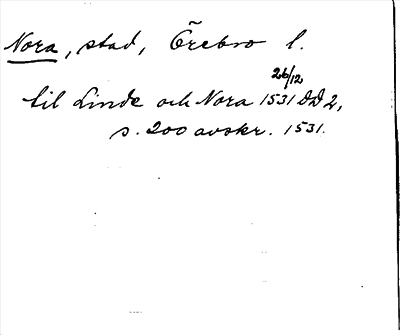 Nora, stad, Örebro l.
til Linde och Nora 26/12 1531 DD 2,
s. 200 avskr. 1531.